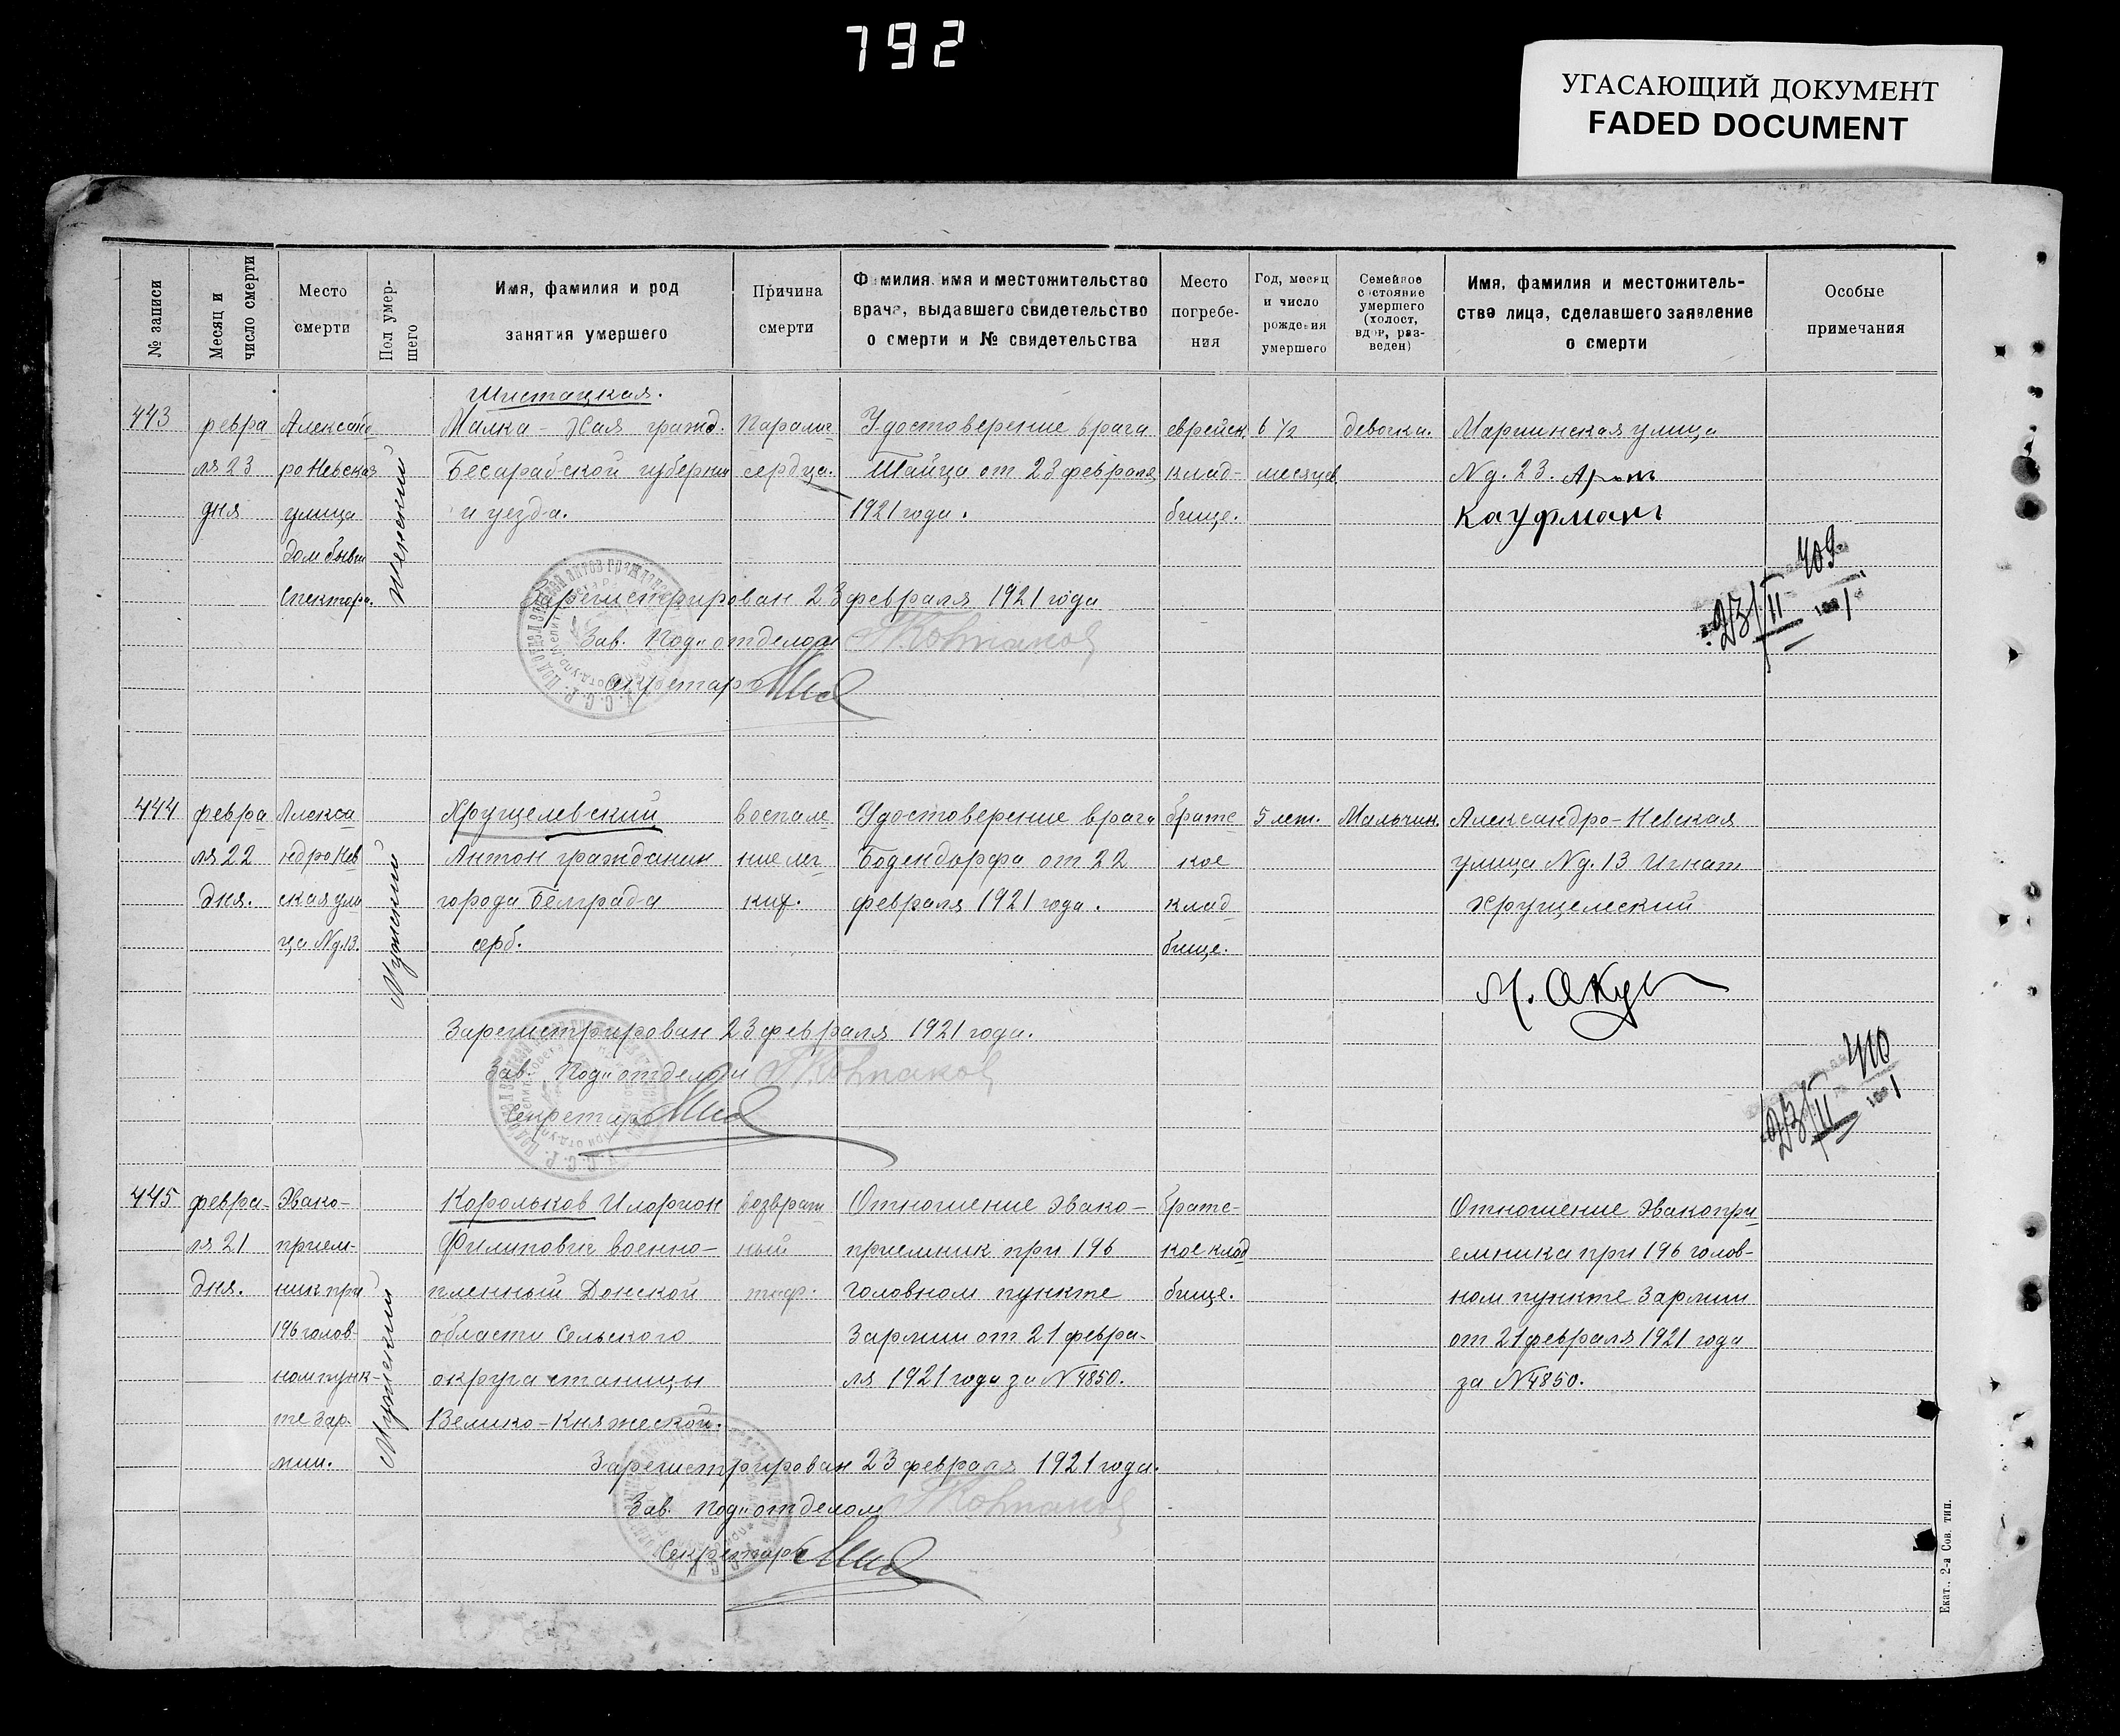 792
УГАСАЮЩИЙ ДОКУМЕНТ
FADED DOCUMENT
№ записи
Месяц и число смерти
Место смерти
Пол умер-шего
Имя, фамилия и род занятия умершего
Причина смерти
Фамилия, имя и местожительство врача, выдавшего свидетельство о смерти и № свидетельства
Место погребе-ния
Год, месяц и число рождения умершего
Семейное состояние умершего (холост, вдов, раз-веден)
Имя, фамилия и местожитель-ство лица, сделавшего заявление о смерти
Особые примечания
443
февра
ля 23
дня
Александ
ро Невская
улица
дом бывш
Спектора.
Женский
Шистацкая.
Малка - Хая гражд.
Бесарабской губернии
и уезда.
Паралич
сердца.
Удостоверение врача
Шайца от 23 февраля
1921 года.
еврейск
клад-
бище.
6 1/2
месяцев
девочка.
Мариинская улица
№ д. 23. Арон
Кауфман
409
23/II
Зарегистрирован 23 февраля 1921 года
Зав. Под"отделом
Секретарь
444
февра
ля 22
дня.
Алекса
ндро Нев
ская ули
ца № д. 13.
Мужской
Хрущелевский
Антон гражданин
города Белграда
серб.
воспале
ние лег
ких.
Удостоверение врача
Бодендорфа от 22
февраля 1921 года.
братс
кое
клад
бище.
5 лет.
Мальчик.
Александро-Невская
улица № д. 13 Игнат
Хрущелеский
410
23/II
Зарегистрирован 23 февраля 1921 года.
Зав. Под"отделом
Секретарь
445
февра-
ля 21
дня.
Эвако-
прием-
ник при
196 голов-
ном пунк-
те 3 ар-
мии.
Мужской
Корольков Иларион
Филипович военно-
пленный Донской
области Сельского
округа станицы
Велико-Княжеской.
возврат
ный
тиф.
Отношение эвако-
приемник при 196
головном пункте
3 армии от 21 февра-
ля 1921 года за № 4850.
братс-
кое клад
бище.
Отношение Эвакопри
емника при 196 голов-
ном пункте 3 армии
от 21 февраля 1921 года
за № 4850.
Зарегистрирован 23 февраля 1921 года.
Зав. Под"отделом
Секретарь
Екат., 2-а Сов. тип.